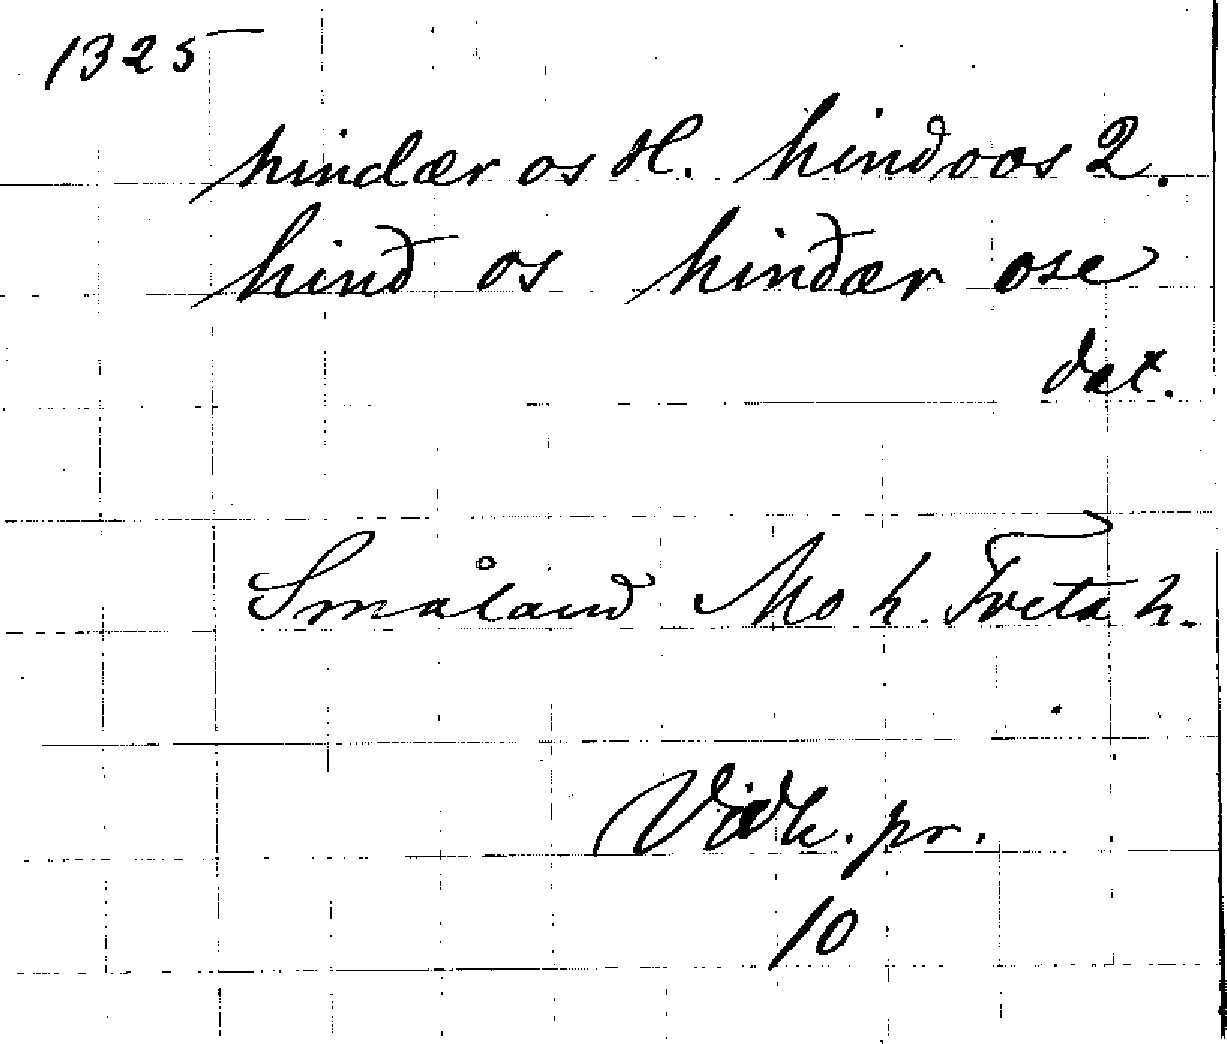 1325
hindær os H. hindoos 2.
hind os hindær ose
dat.
Småland Mo h. Tveta h.
Vidh. pr.
10